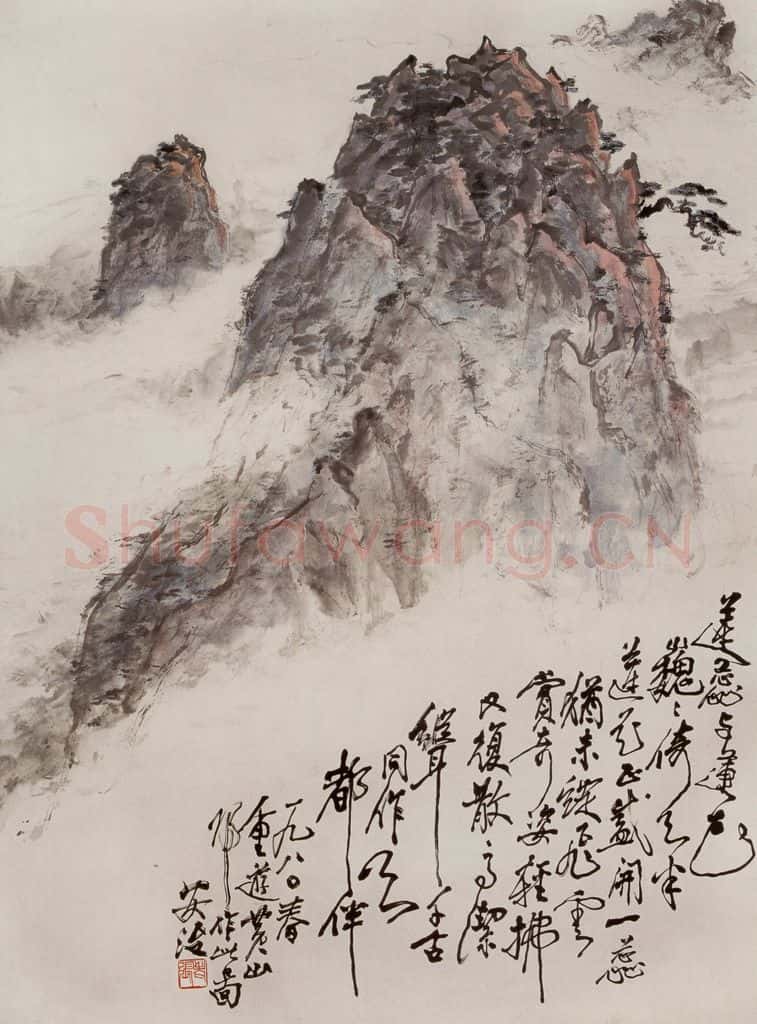 蓮蕊与蓮花
巍〻倚天半
蓮花正盛開一蕊
猶未綻飛雲
賞奇姿輕拂
又復散高潔
聳千古
同作天
都伴
一九八〇春
重遊黃山
歸作此圖
安治
Shufawang.CN